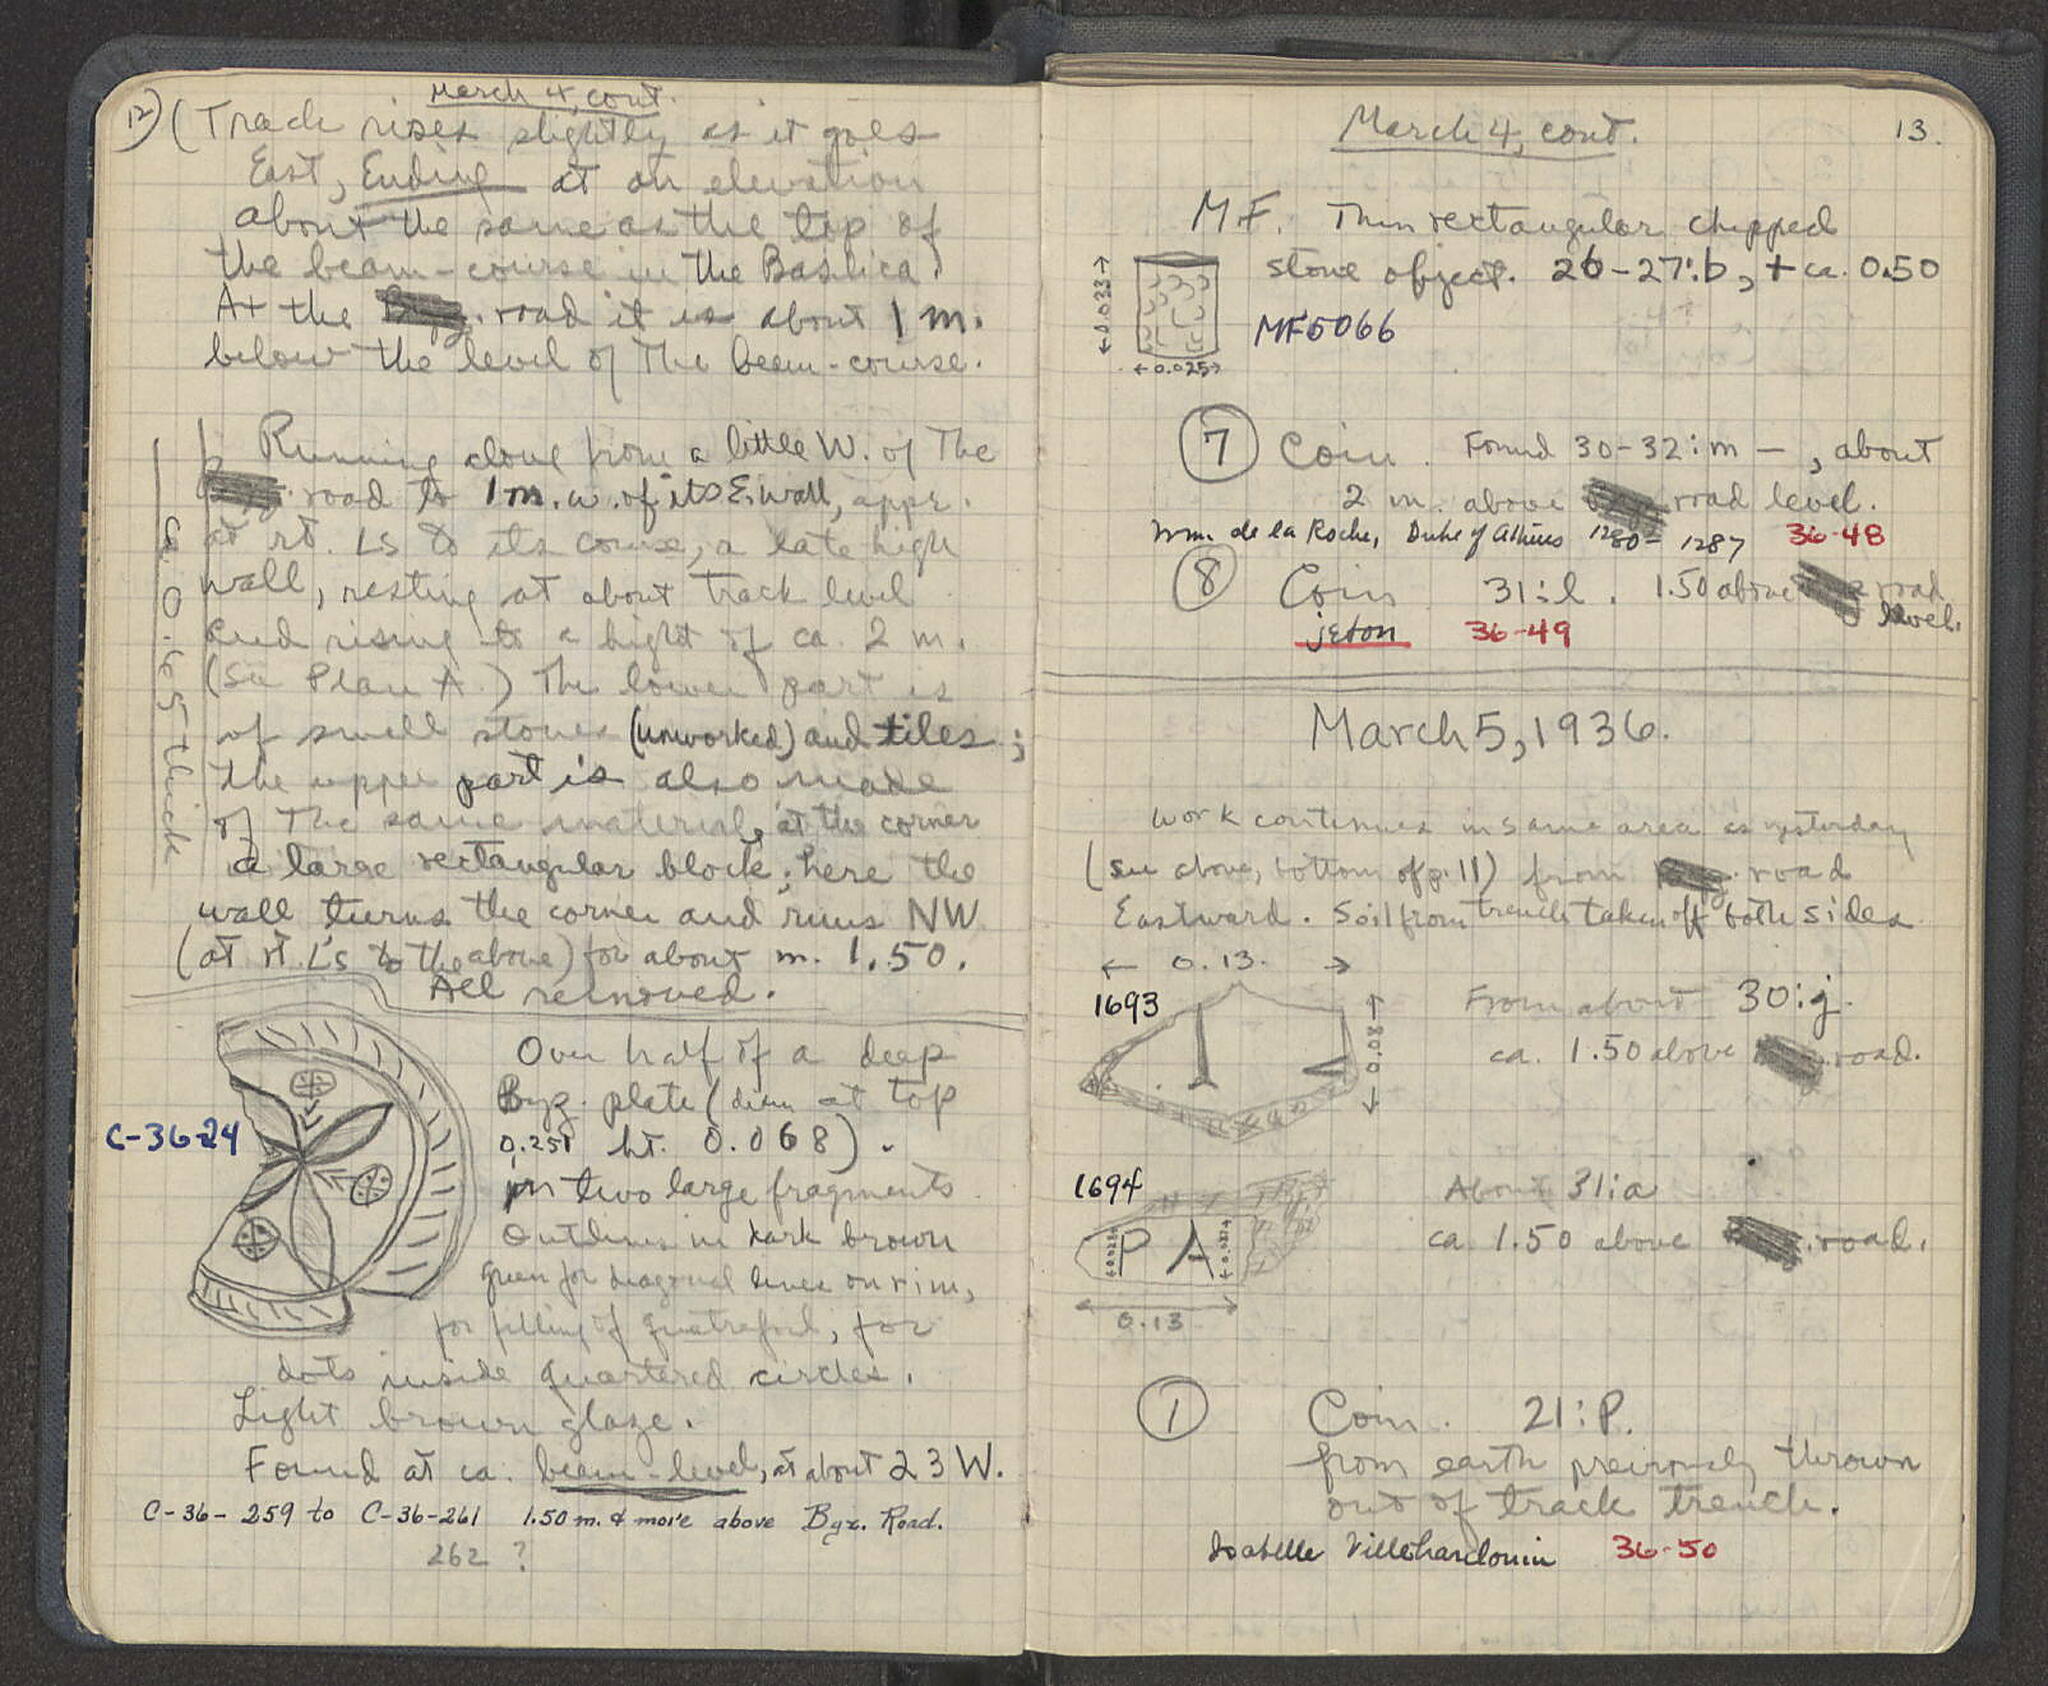 12)
March 4, cont.
(Track rises slightly as it goes
East, Ending at an elevation
about the same as the top of
the beam-course in the Basilica.
At the road it is about 1 m.
below the level of the beam-course.
Running along from a little W. of the
road to 1 m. w. of its E. wall, appr.
at rt. Ls to its course, a late high
wall, resting at about track level
and rising to a hight of ca. 2 m.
(See Plan A.) The lower part is
of small stones (unworked) and tiles;
the upper part is also made
of the same material, at the corner
a large rectangular block; here the
wall turns the corner and runs NW
(at rt. L's to the above) for about m. 1.50.
All removed.
ca. 0.65 thick
Over half of a deep
Byz. plate (diam at top
0.251 ht. 0.068).
C-36-24
in two large fragments
Outlines in dark brown
green for diagonal lines on rim,
for filling of quatrefoil, for
dots inside quartered circles.
Light brown glaze.
Found at ca. beam-level, at about 23 W.
C-36-259 to C-36-261 1.50 m. & more above Byz. Road.
262 ?
March 4, cont.
13.
MF. Thin rectangular chipped
stone object. 26-27:b, + ca. 0.50
MF5066
←0.033→
←0.025→
7 Coin. Found 30-32:m —, about
2 m. above road level.
Wm. de la Roche, Duke of Athens 1280-1287 36-48
8 Coin 31:l. 1.50 above road
level.
jeton 36-49
March 5, 1936.
Work continues in same area as yesterday
(see above, bottom of p. 11) from road
Eastward. Soil from trench taken off both sides
← 0.13. →
1693
From about 30:j.
ca. 1.50 above road.
← 0.08 →
1694
About 31:a
ca. 1.50 above road.
P A
0.13
1 Coin. 21:P.
from earth previously thrown
out of track trench.
Isabelle Villehardouin 36-50